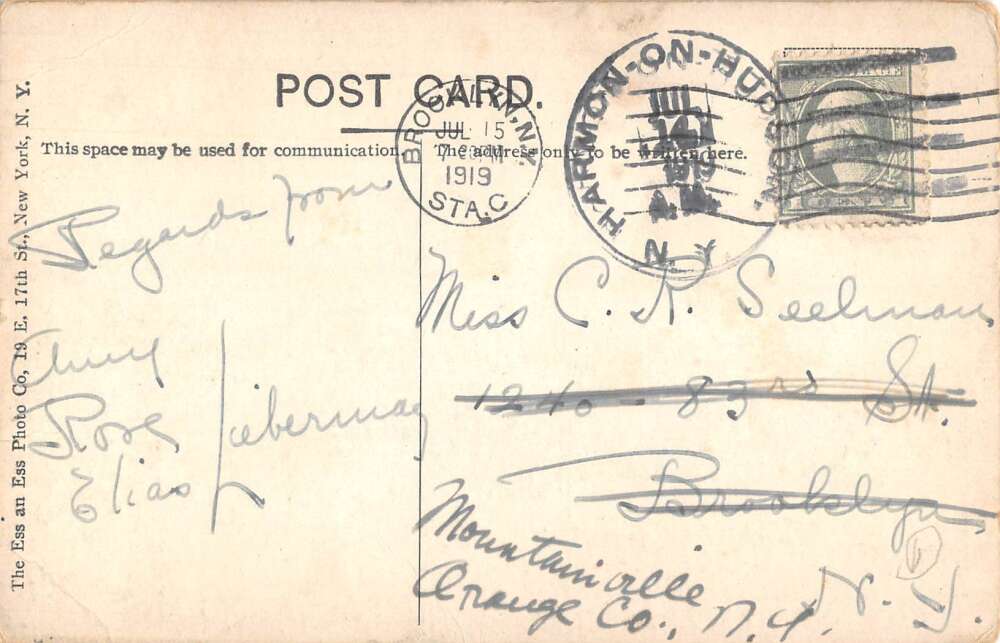 POST CARD.
This space may be used for communication.
The address only to be written here.
The Ess an Ess Photo Co, 19 E. 17th St., New York, N. Y.
BROOKLYN, N.Y.
JUL 15
1919
STA. C
HARMON-ON-HUDSON,
JUL
14
1919
A.M.
N. Y.
Regards from
Amy
Rose
Elias
Lieberman
Miss C. R. Seelman
1240 - 83rd St.
Brooklyn
N. Y.
Mountainville
Orange Co., N.Y.